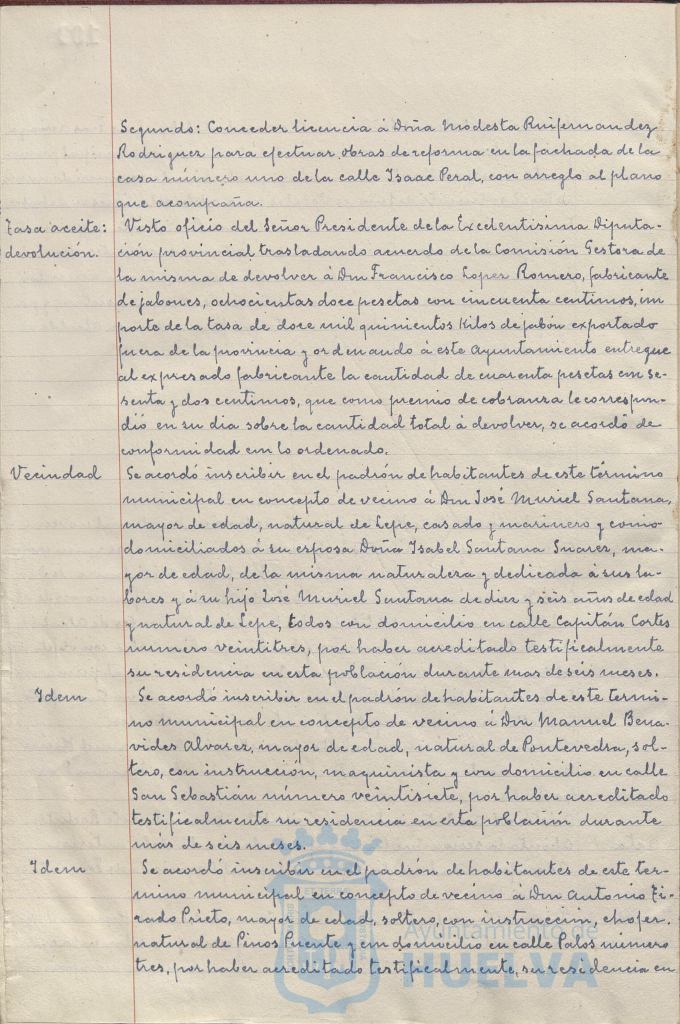 Segundo: Conceder licencia á Doña Modesta Ruifernandez
Rodriguez para efectuar obras de reforma en la fachada de la
casa número uno de la calle Isaac Peral, con arreglo al plano
que acompaña.
Tasa aceite:
devolución.
Visto oficio del Señor Presidente de la Excelentisima Diputa-
ción provincial, trasladando acuerdo de la Comisión Gestora de
la misma de devolver á Don Francisco Lopez Romero, fabricante
de jabones, ochocientas doce pesetas con cincuenta centimos, im
porte de la tasa de doce mil quinientos Kilos de jabón exportado
fuera de la provincia y ordenando á este Ayuntamiento entregue
al expresado fabricante la cantidad de cuarenta pesetas con se-
senta y dos centimos, que como premio de cobranza le correspon-
dió en su dia sobre la cantidad total á devolver, se acordó de
conformidad con lo ordenado.
Vecindad
Se acordó inscribir en el padrón de habitantes de este término
municipal en concepto de vecino á Don José Muriel Santana,
mayor de edad, natural de Lepe, casado y marinero y como
domiciliados á su esposa Doña Isabel Santana Suarez, ma-
yor de edad, de la misma naturaleza y dedicada á sus la-
bores y á su hijo José Muriel Santana de diez y seis años de edad
y natural de Lepe, todos con domicilio en calle Capitán Cortes
número veintitrés, por haber acreditado testificalmente
su residencia en esta población durante mas de seis meses.
Idem
Se acordó inscribir en el padrón de habitantes de este termi-
no municipal en concepto de vecino á Don Manuel Bena-
vides Alvarez, mayor de edad, natural de Pontevedra, sol-
tero, con instrucción, maquinista y con domicilio en calle
San Sebastián número veintisiete, por haber acreditado
testificalmente su residencia en esta población durante
más de seis meses.
Idem
Se acordó inscribir en el padrón de habitantes de este ter-
mino municipal en concepto de vecino á Don Antonio Ti-
rado Prieto, mayor de edad, soltero, con instrucción, chofer,
natural de Pinos Puente y con domicilio en calle Palos número
tres, por haber acreditado testificalmente, su residencia en
Ayuntamiento de
HUELVA